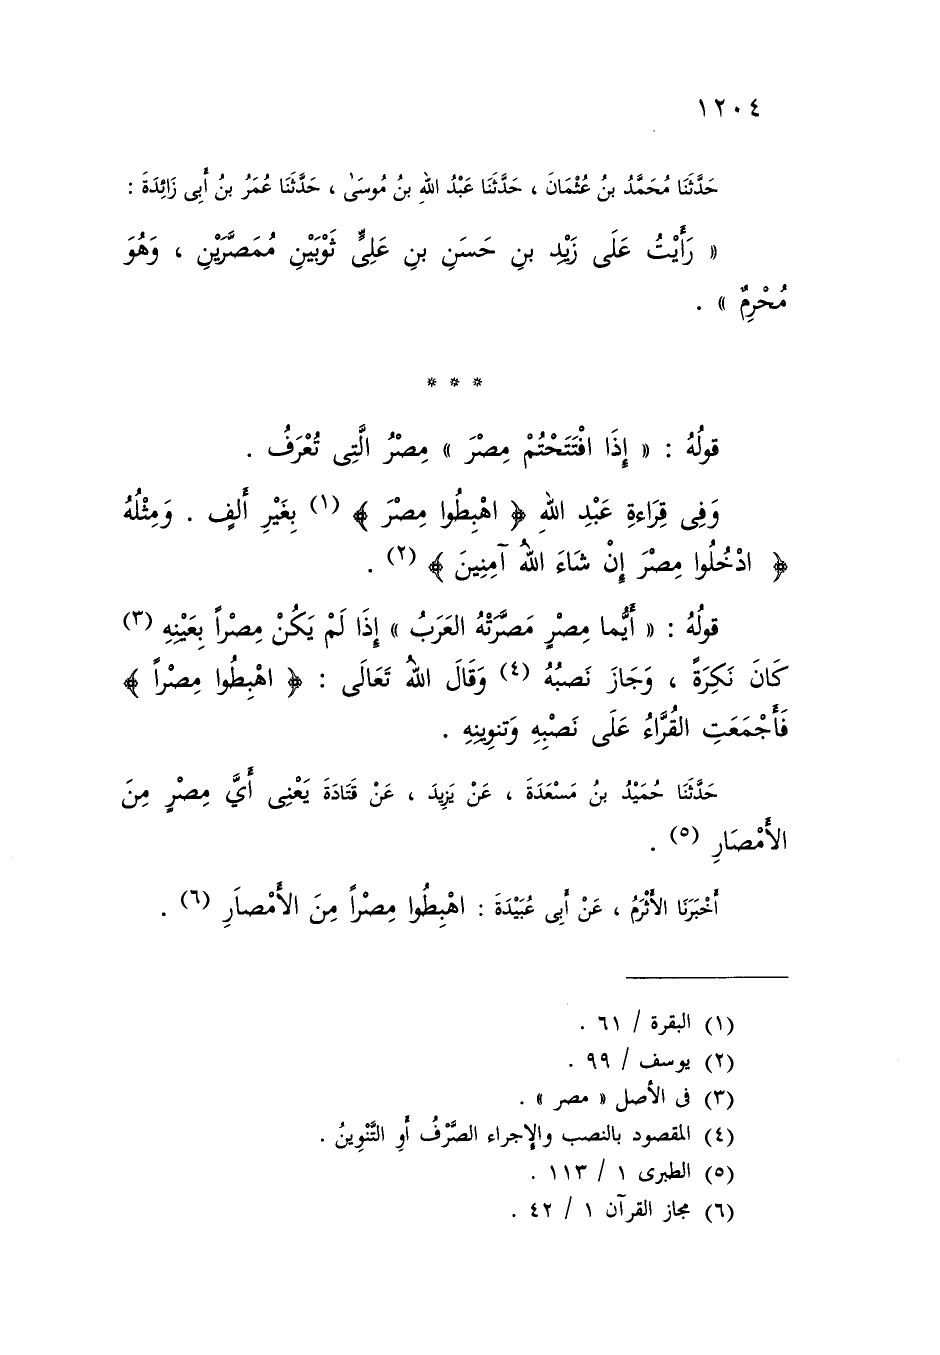 ١٢٠٤
حَدَّثَنَا مُحَمَّدُ بنُ عُثْمَانَ ، حَدَّثَنَا عَبْدُ اللهِ بنُ مُوسَىٰ ، حَدَّثَنَا عُمَرُ بنُ أَبِى زَائِدَةَ :
« رَأَيْتُ عَلَى زَيْدِ بنِ حَسَنِ بنِ عَلِىٍّ ثَوْبَيْنِ مُمَصَّرَيْنِ ، وَهُوَ
مُحْرِمٌ » .
* * *
قولُهُ : « إِذَا افْتَتَحْتُمْ مِصْرَ » مِصْرُ الَّتِى تُعْرَفُ .
وَفِى قِرَاءةِ عَبْدِ اللهِ ﴿ اهْبِطُوا مِصْرَ ﴾ (١) بِغَيْرِ أَلفٍ . وَمِثْلُهُ
﴿ ادْخُلُوا مِصْرَ إِنْ شَاءَ اللهُ آمِنِينَ ﴾ (٢) .
قولُهُ : « أَيُّما مِصْرٍ مَصَّرَتْهُ العَرَبُ » إِذَا لَمْ يَكُنْ مِصْراً بِعَيْنِهِ (٣)
كَانَ نَكِرَةً ، وَجَازَ نَصبُهُ (٤) وَقَالَ اللهُ تَعَالَى : ﴿ اهْبِطُوا مِصْراً ﴾
فَأَجْمَعَتِ القُرَّاءُ عَلَى نَصْبِهِ وَتنوِينِهِ .
حَدَّثَنَا حُمَيْدُ بنُ مَسْعَدَةَ ، عَنْ يَزِيدَ ، عَنْ قَتَادَةَ يَعْنِى أَىَّ مِصْرٍ مِنَ
الأَمْصَارِ (٥) .
أَخْبَرَنَا الأَثْرَمُ ، عَنْ أَبِى عُبَيْدَةَ : اهْبِطُوا مِصْراً مِنَ الأَمْصاَرِ (٦) .
(١) البقرة / ٦١ .
(٢) يوسف / ٩٩ .
(٣) فى الأصل « مصر » .
(٤) المقصود بالنصب والإجراء الصَّرْفُ أَوِ التَّنْوِينُ .
(٥) الطبرى ١ / ١١٣ .
(٦) مجاز القرآن ١ / ٤٢ .